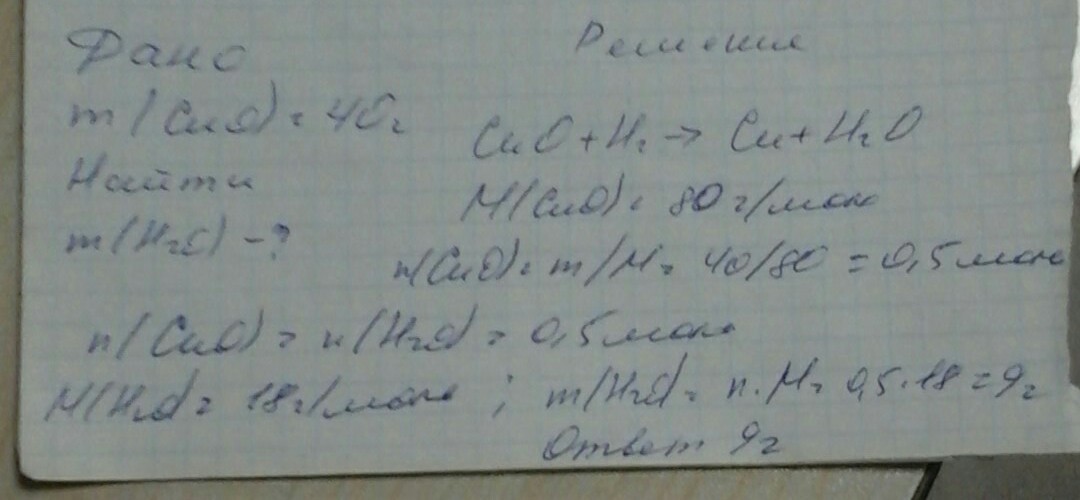 Дано
Решение
m(CuO) = 40г
CuO + H₂ → Cu + H₂O
Найти
M(CuO) = 80 г/моль
m(H₂O) - ?
n(CuO) = m/M = 40/80 = 0,5 моль
n(CuO) = n(H₂O) = 0,5 моль
M(H₂O) = 18 г/моль ; m(H₂O) = n·M = 0,5·18 = 9г
Ответ 9г